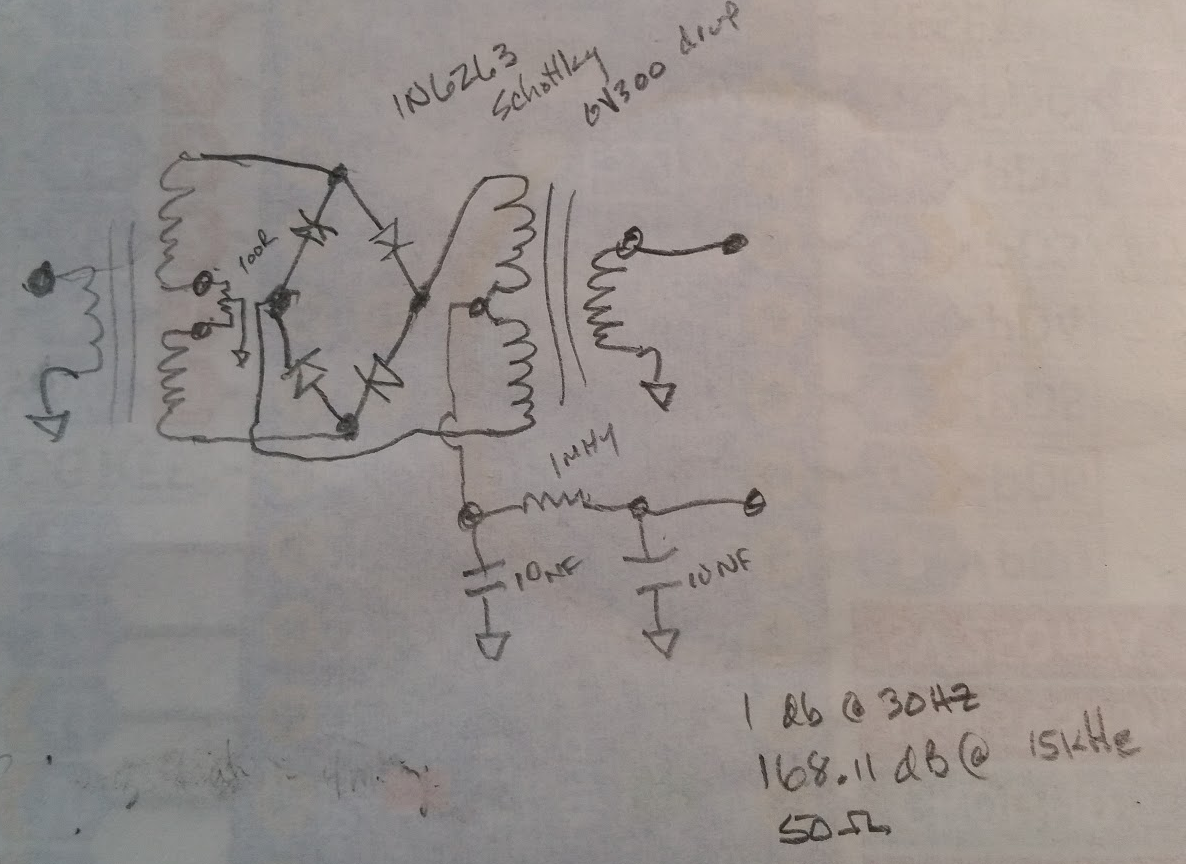 1N6263
Schottky
0V300 drop
100R
1MHY
10NF
10NF
1 db @ 30HZ
168.11 dB @ 15KHz
50Ω